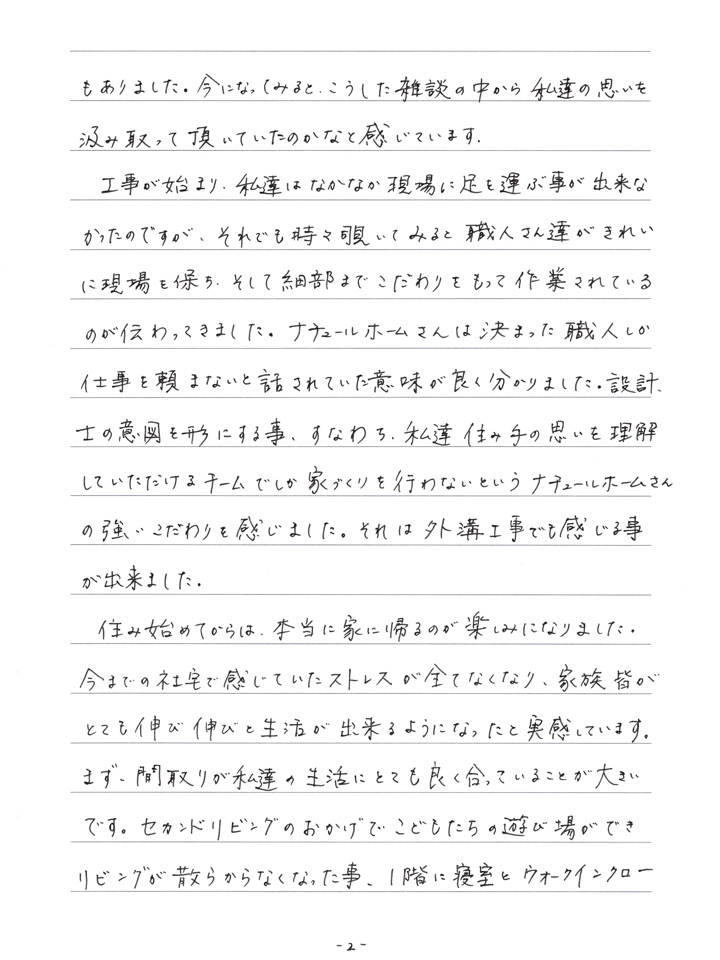 もありました。今になってみると、こうした雑談の中から私達の思いを
汲み取って頂いていたのかなと感じています。
工事が始まり、私達はなかなか現場に足を運ぶ事が出来な
かったのですが、それでも時々覗いてみると職人さん達がきれい
に現場を保ち、そして細部までこだわりをもって作業されている
のが伝わってきました。ナチュールホームさんは決まった職人しか
仕事を頼まないと話されていた意味が良く分かりました。設計
士の意図を形にする事、すなわち、私達住み手の思いを理解
していただけるチームでしか家づくりを行わないというナチュールホームさん
の強いこだわりを感じました。それは外溝工事でも感じる事
が出来ました。
住み始めてからは、本当に家に帰るのが楽しみになりました。
今までの社宅で感じていたストレスが全てなくなり、家族皆が
とても伸び伸びと生活が出来るようになったと実感しています。
まず、間取りが私達の生活にとても良く合っていることが大きい
です。セカンドリビングのおかげでこどもたちの遊び場ができ
リビングが散らからなくなった事、1階に寝室とウォークインクロー
-2-